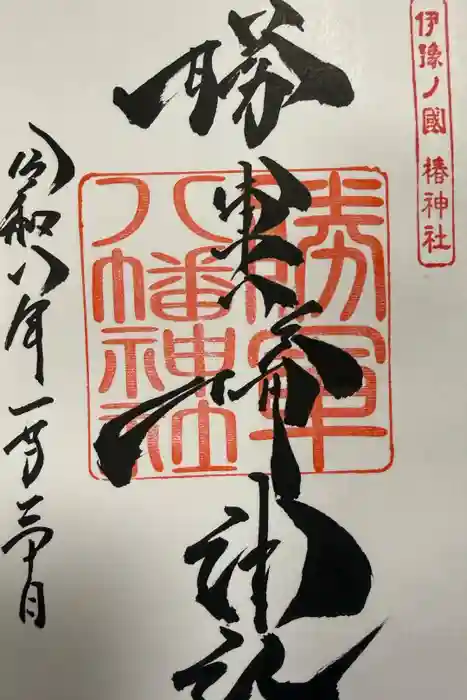 伊豫ノ國 椿神社
勝軍八幡神社
勝軍八幡神社
令和八年一月三十日